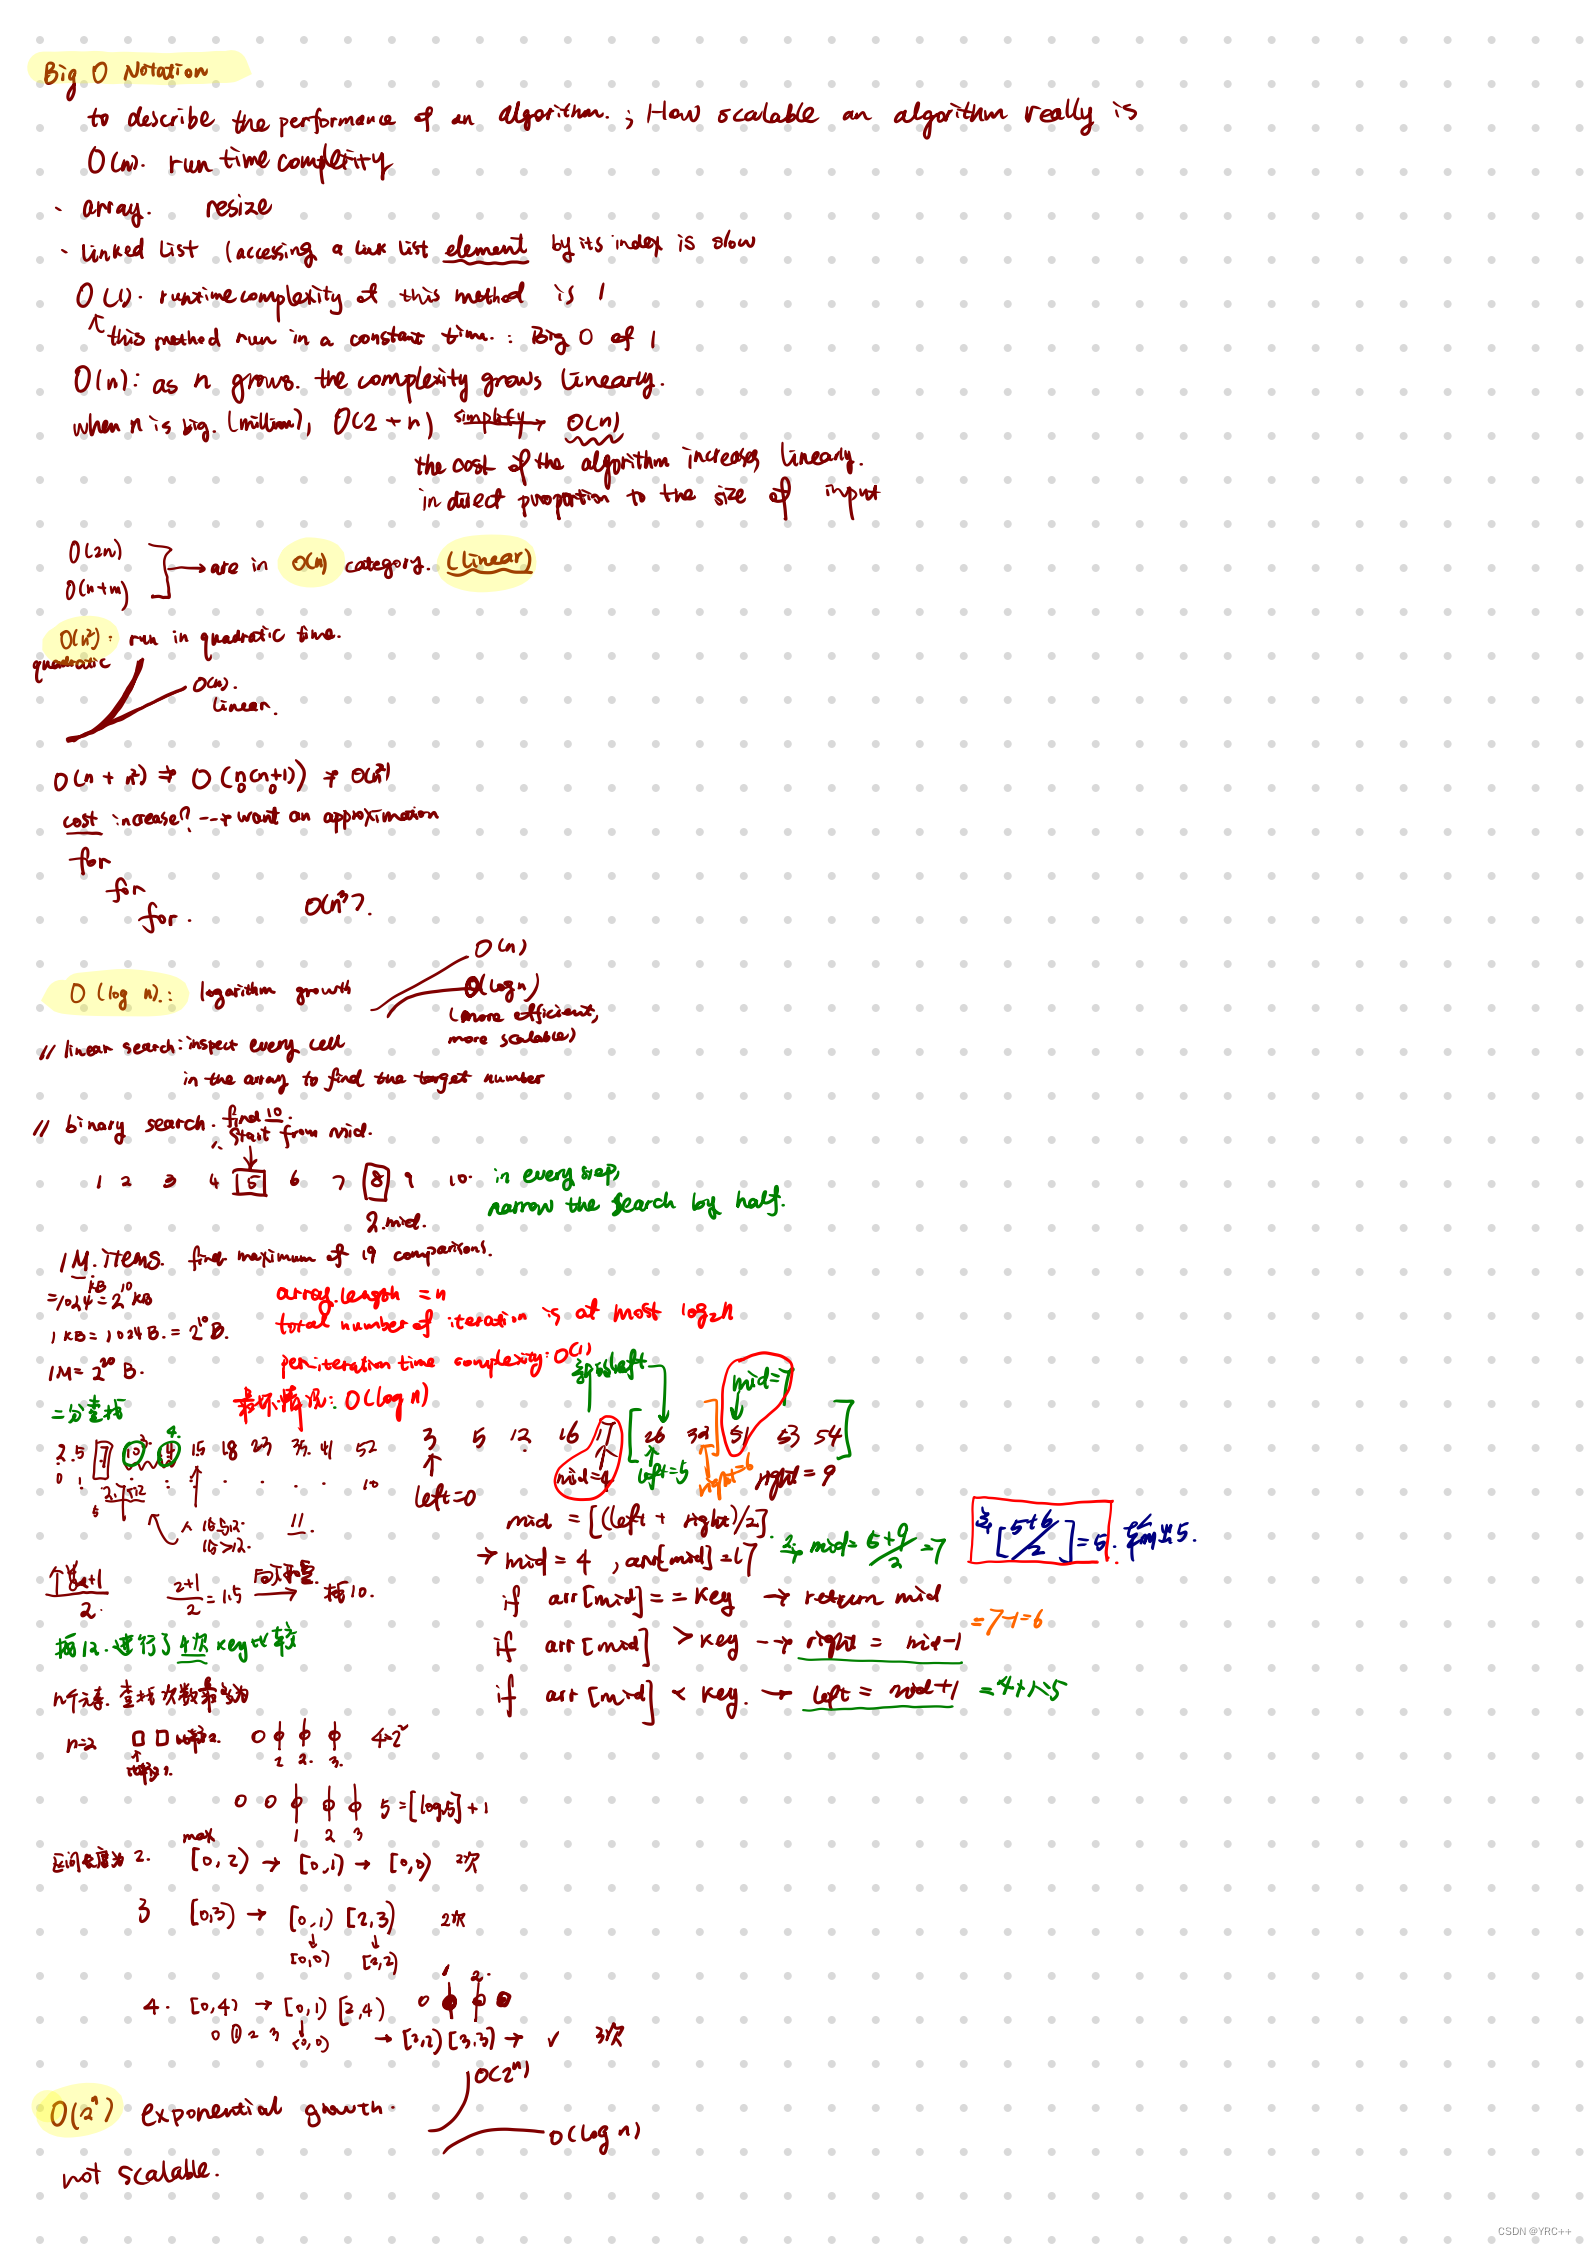 Big O Notation
to describe the performance of an algorithm. ; How scalable an algorithm really is
O(n). run time complexity
- array. resize
- Linked List (accessing a link list element by its index is slow
O(1). runtime complexity of this method is 1
this method run in a constant time. : Big O of 1
O(n): as n grows. the complexity grows linearly.
when n is big. (million), O(2+n) simplify→ O(n)
the cost of the algorithm increases linearly.
in direct proportion to the size of input
O(2n)
O(n+m)
→ are in O(n) category. (linear)
O(n²). run in quadratic time.
quadratic
O(n).
linear.
O(n + n²) ⇒ O(n(n+1)) ⇒ O(n²)
cost increase? --→ want an approximation
for
for
for. O(n³).
O(n)
O(log n).: logarithm growth O(log n)
(more efficient,
more scalable)
// linear search: inspect every cell
in the array to find the target number
// binary search. find 10.
start from mid.
1 2 3 4 5 6 7 8 9 10. in every step,
narrow the search by half.
2.mid.
1M.items. find maximum of 19 comparisons.
KB
=1024=2^10 KB
array.length = n
1KB=1024B.=2^10 B. total number of iteration is at most log₂n
1M=2^20 B. per iteration time complexity: O(1)
left mid=7
二分查找 最坏情况: O(log n)
2 5 7 10 14 15 18 23 35 41 52
3 5 12 16 17 [26 32] 51 53 54]
0 1 10
left=0 mid=4 left=5 right=6 right=9
2.712
15与12.
15>12. 11
mid = [(left + right)/2]
→ mid=4, arr[mid]=17 mid=5+9/2=7 [5+6/2]=5.
2+1/2=1.5 向下取整→ 找10.
if arr[mid]==key → return mid
=7-1=6
找12.进行了4次key比较 if arr[mid] > key --→ right = mid-1
n个元素.查找次数最多为 if arr[mid] < key. → left = mid+1 =4+1=5
n=2 4=2²
1 2. 3.
5=[log₂5]+1
1 2 3
max
区间长度为2. [0,2) → [0,1) → [0,0) 2次
3 [0,3) → [0,1) [2,3) 2次
[0,0) [2,2)
1 2.
4. [0,4) → [0,1) [2,4)
0 1 2 3 [0,0) → [2,2) [3,3) → ✓ 3次
O(2ⁿ)
O(2ⁿ) exponential growth.
O(log n)
not scalable.
CSDN @YRC++